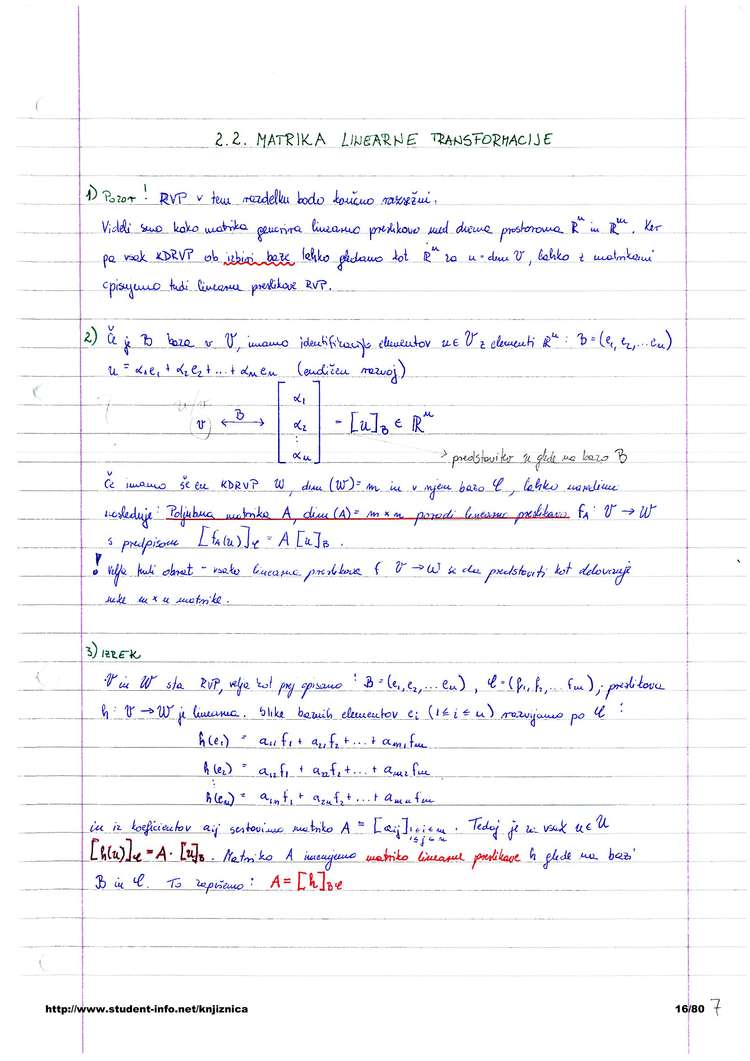 2.2. MATRIKA LINEARNE TRANSFORMACIJE
1) Pozor! RVP v tem razdelku bodo končno razsežni.
Videli smo kako matrika generira linearno preslikavo med dvema prostoroma ℝⁿ in ℝᵐ. Ker
pa vsak KDRVP ob izbiri baze lahko gledamo kot ℝⁿ za n = dim V, lahko z matrikami
opisujemo tudi linearne preslikave RVP.
2) Če je B baza v V, imamo identifikacijo elementov u ∈ V z elementi ℝⁿ : B = (e₁, e₂, ... eₙ)
u = α₁e₁ + α₂e₂ + ... + αₙeₙ (enoličen razvoj)
v ←B→ [α₁ α₂ ⋮ αₙ] = [u]_B ∈ ℝⁿ
→ predstavitev u glede na bazo B
Če imamo še en KDRVP W, dim (W) = m in v njem bazo C, lahko naredimo
naslednje: Poljubna matrika A, dim (A) = m × n porodi linearno preslikavo f_A : V → W
s predpisom [f_A(u)]_C = A [u]_B .
! Velja tudi obrat – vsako linearno preslikavo f V → W se da predstaviti kot delovanje
neke m × n matrike.
3) IZREK
V in W sta RVP, velja kot prej opisano : B = (e₁, e₂, ... eₙ) , C = (f₁, f₂, ... fₘ) ; preslikava
h : V → W je linearna. Slike baznih elementov eᵢ (1 ≤ i ≤ n) razvijamo po C :
h(e₁) = a₁₁f₁ + a₂₁f₂ + ... + aₘ₁fₘ
h(e₂) = a₁₂f₁ + a₂₂f₂ + ... + aₘ₂fₘ
⋮
h(eₙ) = a₁ₙf₁ + a₂ₙf₂ + ... + aₘₙfₘ
in iz koeficientov aij sestavimo matriko A = [aij] 1≤i≤m 1≤j≤n . Tedaj je za vsak u ∈ U
[h(u)]_C = A · [u]_B . Matriko A imenujemo matrika linearne preslikave h glede na bazi
B in C. To zapišemo : A = [h]_BC
http://www.student-info.net/knjiznica
16/80 7